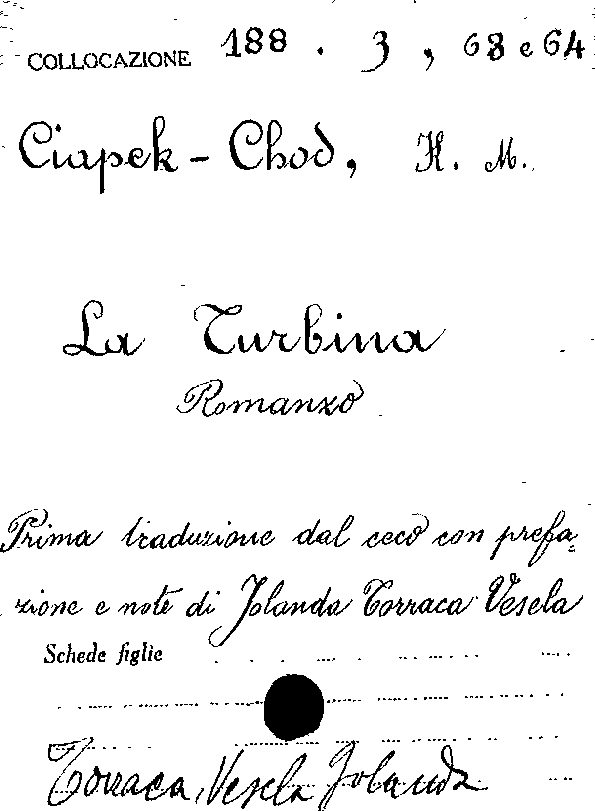 COLLOCAZIONE 188 . 3 , 63 e 64
Ciapek - Chod, K. M.
La Turbina
Romanzo
Prima traduzione dal ceco con prefa=
zione e note di Jolanda Torraca Vesela
Schede figlie
Torraca, Vesela Jolanda